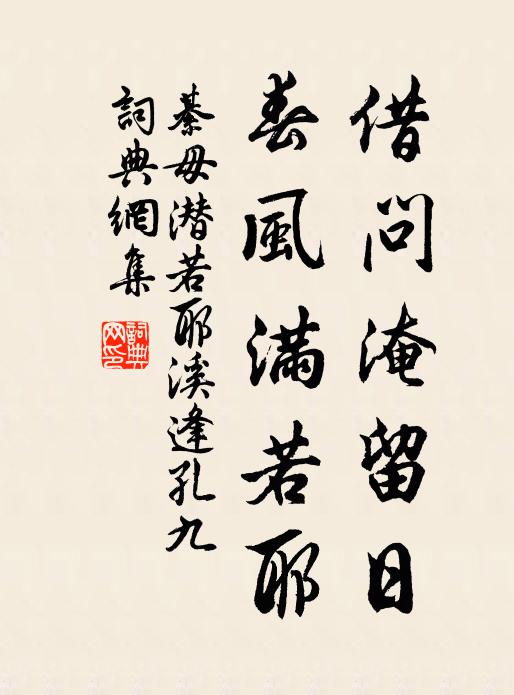 借問淹留日
春風滿若耶
綦毋潛若耶溪逢孔九
詞典網集
詞典網印